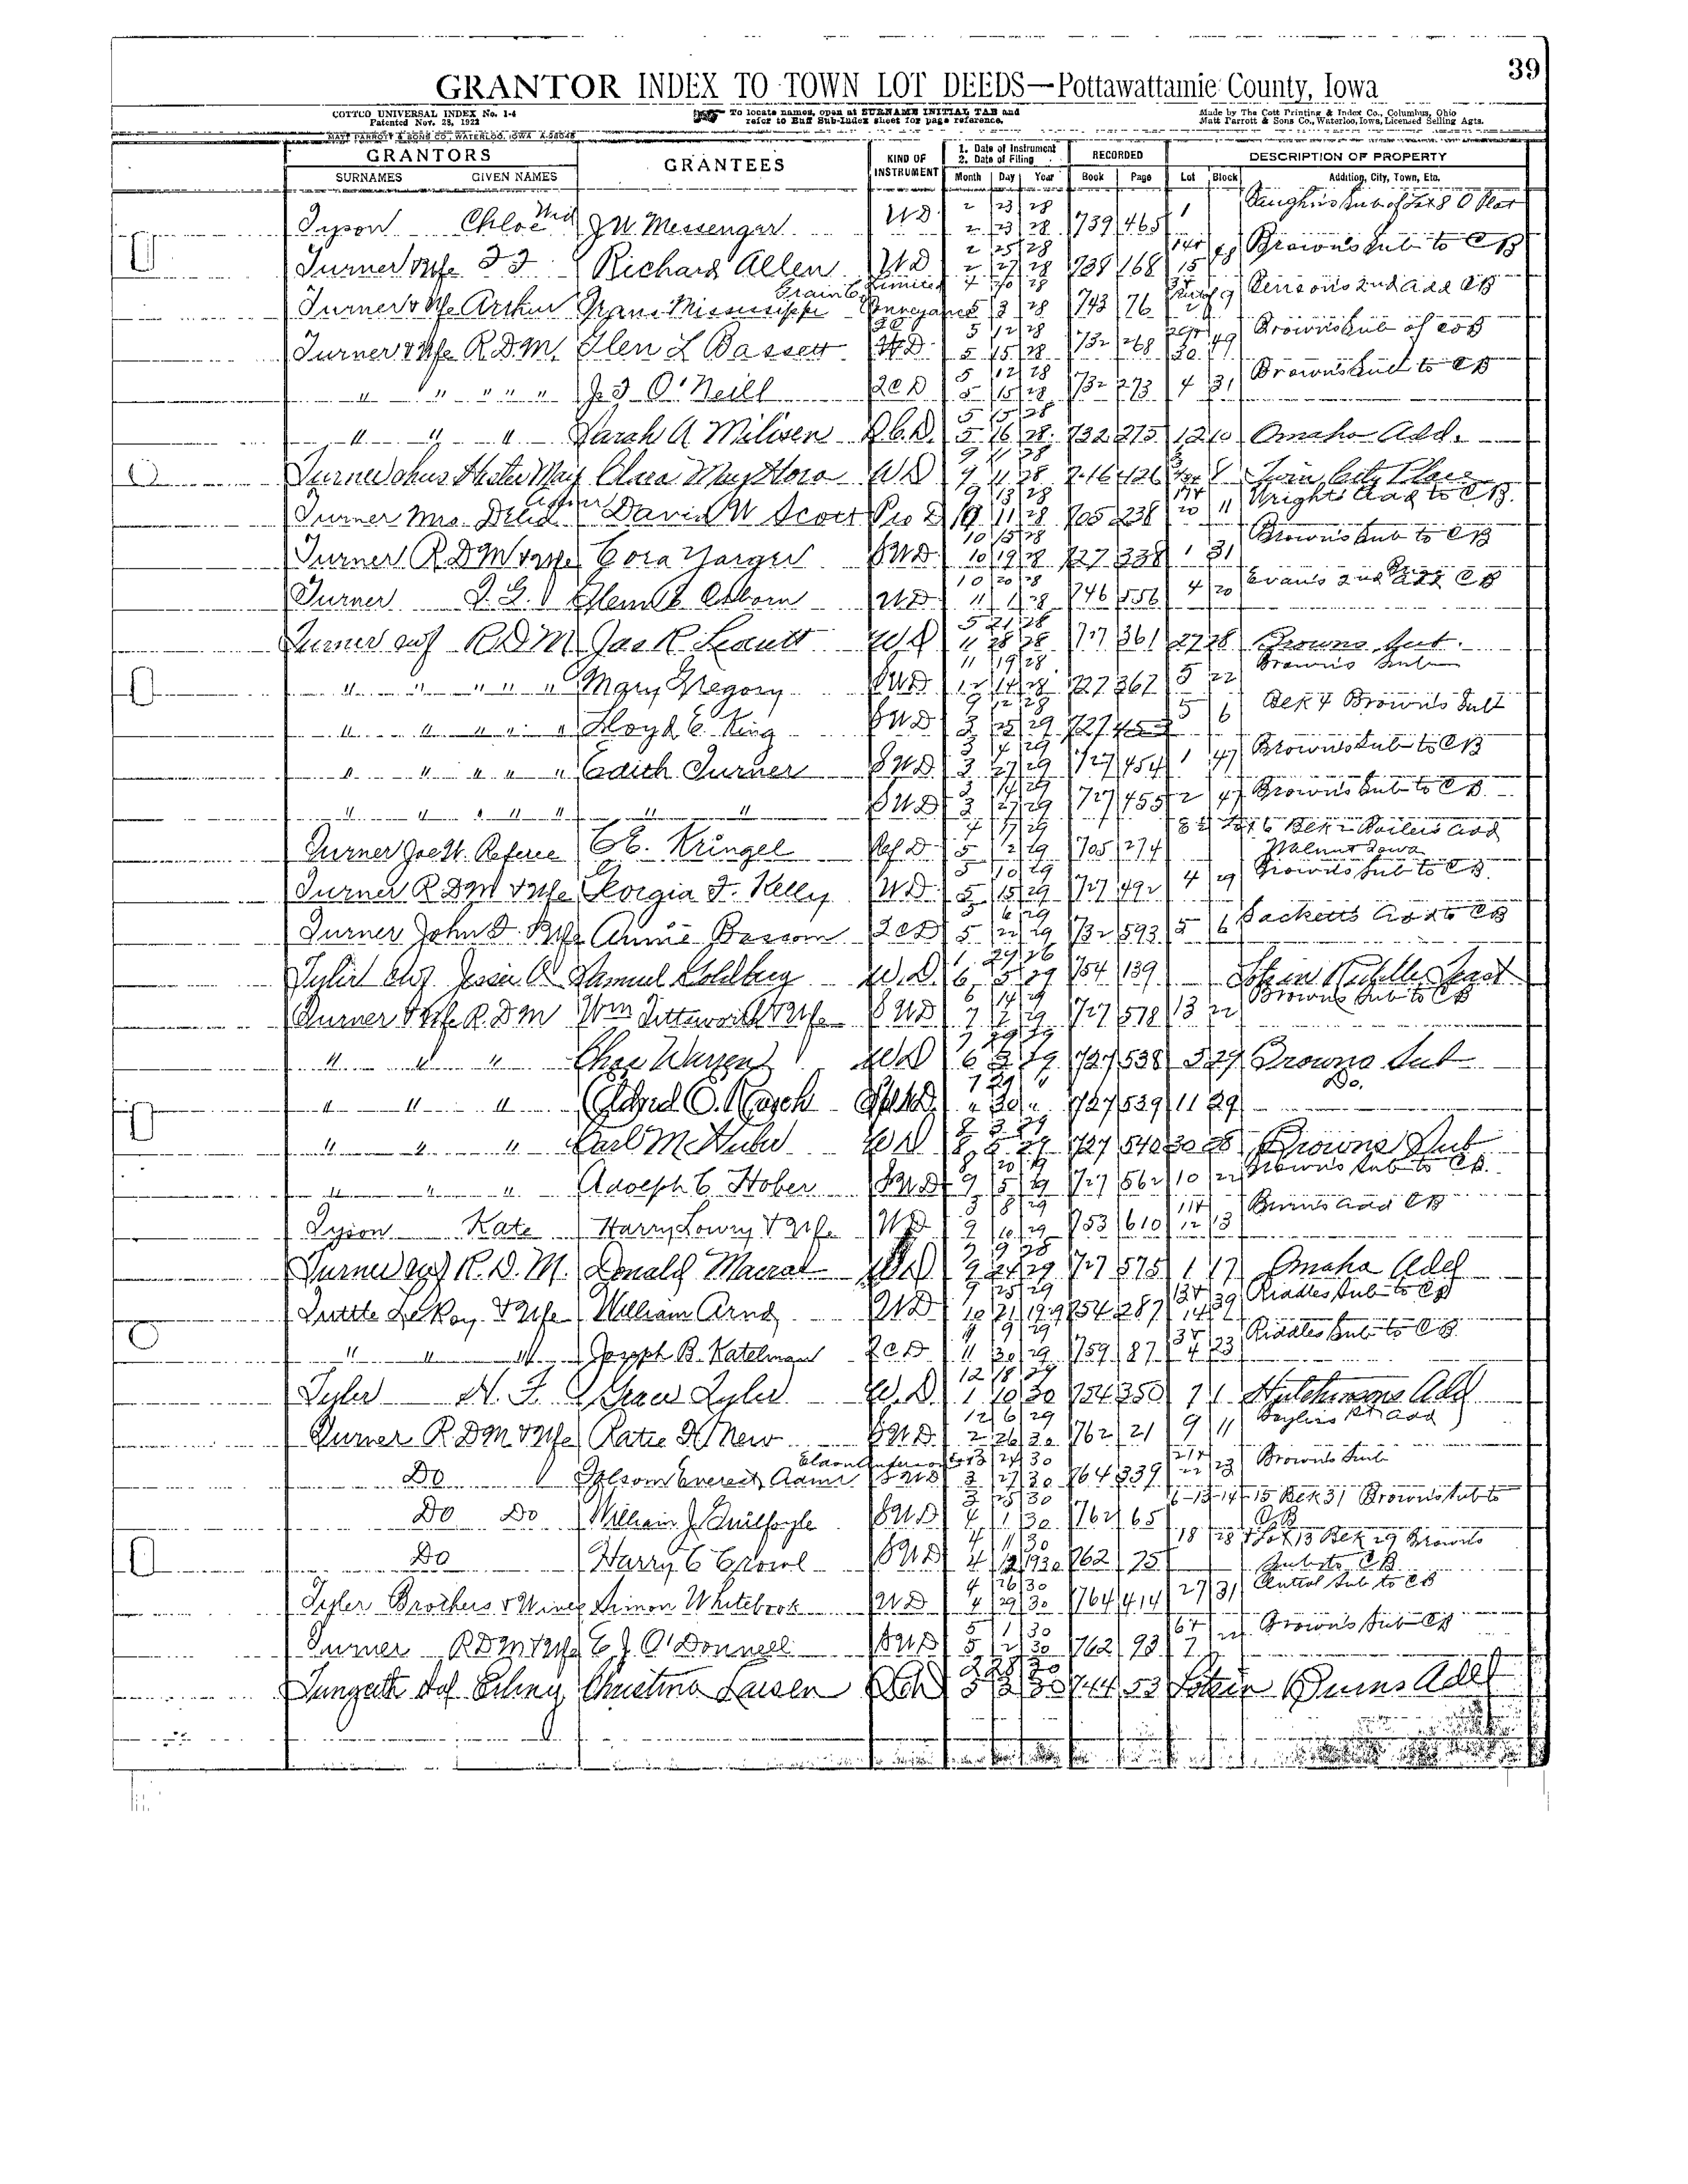 39
GRANTOR INDEX TO TOWN LOT DEEDS—Pottawattamie County, Iowa
COTTCO UNIVERSAL INDEX No. 1-4
Patented Nov. 28, 1922
To locate names, open at SURNAME INITIAL TAB and
refer to Buff Sub-Index sheet for page reference.
Made by The Cott Printing & Index Co., Columbus, Ohio
Matt Parrott & Sons Co., Waterloo, Iowa, Licensed Selling Agts.
MATT PARROTT & SONS CO., WATERLOO, IOWA
GRANTORS
SURNAMES GIVEN NAMES
GRANTEES
KIND OF INSTRUMENT
1. Date of Instrument
2. Date of Filing
Month Day Year
RECORDED
Book Page
DESCRIPTION OF PROPERTY
Lot Block Addition, City, Town, Etc.
Tyson Chloe J W Messenger WD 2 23 28 2 23 28 739 465 1
Turner & Wfe Richard Allen WD 2 25 28 2 27 28 738 168 Brown's Sub to C B
Turner & Wfe Arthur Trans Mississippi Grain Co Limited 4 30 28 5 3 28 743 76 2nd Add C B
Turner & Wfe R.D.M. Glen L Bassett 5 12 28 5 15 28 732 268 49
" " " " " J. J. O'Neill QCD 5 12 28 5 15 28 732 273 4 31 Browns Sub to C B
" " " Sarah A Milisen Q.C.D. 5 15 28 5 16 28 732 275 12 10 Omaha Add.
Clara May WD 9 11 28 9 11 28 716 426 Twin City Place
Turner Mrs. David W Scott 9 13 28 11 28 705 238 11 Wrights Add to C.B.
Turner R D M & Wfe Cora Yarger SWD 10 15 28 10 19 28 727 338 1 31 Brown's Sub to C B
Turner Glenn Osborn WD 10 20 28 11 1 28 746 556 4 20 Evans 2nd Add C B
Turner & wf R D M Jas R Leavitt WD 5 21 28 11 28 28 727 361 27 28 Browns Sub.
" " " " " Mary Gregory SWD 11 19 28 12 14 28 727 367 5 22 Browns Sub
" " " " " Floyd E. King SWD 9 12 28 3 25 29 727 453 5 6 Blk 4 Browns Sub
" " " " " Edith Turner SWD 3 14 29 3 27 29 727 454 1 47 Browns Sub to C B
" " " " " " " SWD 3 14 29 3 27 29 727 455 2 47 Browns Sub to C B
Turner Joe W. Referee C E. Kringel Ref D 4 17 29 5 2 29 705 274 Walnut Iowa
Turner R D M & Wfe Georgia F. Kelly WD 5 10 29 5 15 29 727 492 4 29 Browns Sub to C B.
Turner John & Wfe Annie Bascom QCD 5 6 29 5 22 29 732 593 5 6 Sacketts Add to C B
Samuel Goldberg W.D. 1 29 26 6 5 29 754 139
Turner & Wfe R. D M Wm Tittsworth & Wfe SWD 6 14 29 7 2 29 727 578 13 22 Browns Sub to C B
" " " Chas Warren WD 727 538 5 29 Browns Sub
" " " 727 539 11 29 Do.
" " " Carl M Huber WD 8 3 29 8 5 29 727 540 30 28 Browns Sub
" " " Adolph C Hober SWD 8 20 29 9 5 29 727 562 10 22 Browns Sub to C B.
Tyson Kate Harry Lowry & Wfe WD 3 8 29 9 10 29 753 610 11 & 12 13 Burns Add C B
Turner & wf R. D. M. Donald Macrae WD 9 9 28 9 24 29 727 575 1 17 Omaha Add
Tuttle LeRoy & Wfe William Arnd WD 9 25 29 10 21 1929 754 287 13 & 14 39 Riddles Sub to C B
" " " Joseph B. Katelman QCD 9 9 29 11 30 29 759 87 3 & 4 23 Riddles Sub to C B
Tyler H. F. Grace Tyler W.D. 12 18 29 1 10 30 754 350 7 1 Hutchinsons Add
Turner R. D M & Wfe Katie H New SWD 12 6 29 2 26 30 762 21 9 11 Add
Do Folsom Everest, Admr SWD 3 24 30 3 27 30 764 339 21 & 22 23 Browns Sub
Do Do William J. Guilfoyle SWD 3 25 30 4 1 30 762 65 6-13-14-15 Blk 31 Browns Sub to C B
Do Harry C Crowl SWD 4 11 30 4 12 1930 762 75 18 28 & Lot 13 Blk 29 Browns Sub to C B
Tyler Brothers & Wives Simon Whitebook WD 4 26 30 4 29 30 764 414 27 31 Central Sub to C B
Turner R D M & Wfe E J O'Donnell SWD 5 1 30 5 2 30 762 93 6 & 7 Browns Sub C B
Christina Larsen 2 28 30 744 53 Lots in Burns Add